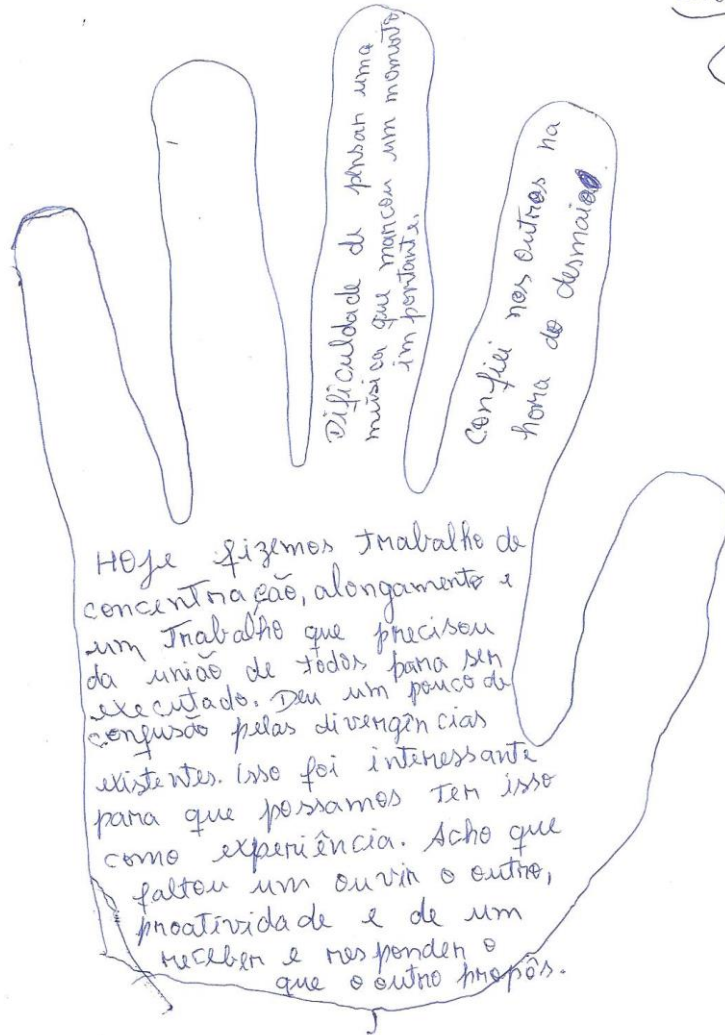 Dificuldade de pensar uma
música que marcou um momento
importante.
Confiei nos outros na
hora do desmaio
Hoje fizemos trabalho de
concentração, alongamento e
um trabalho que precisou
da união de todos para ser
executado. Deu um pouco de
confusão pelas divergências
existentes. Isso foi interessante
para que possamos ter isso
como experiência. Acho que
faltou um ouvir o outro,
proatividade e de um
receber e responder o
que o outro propôs.